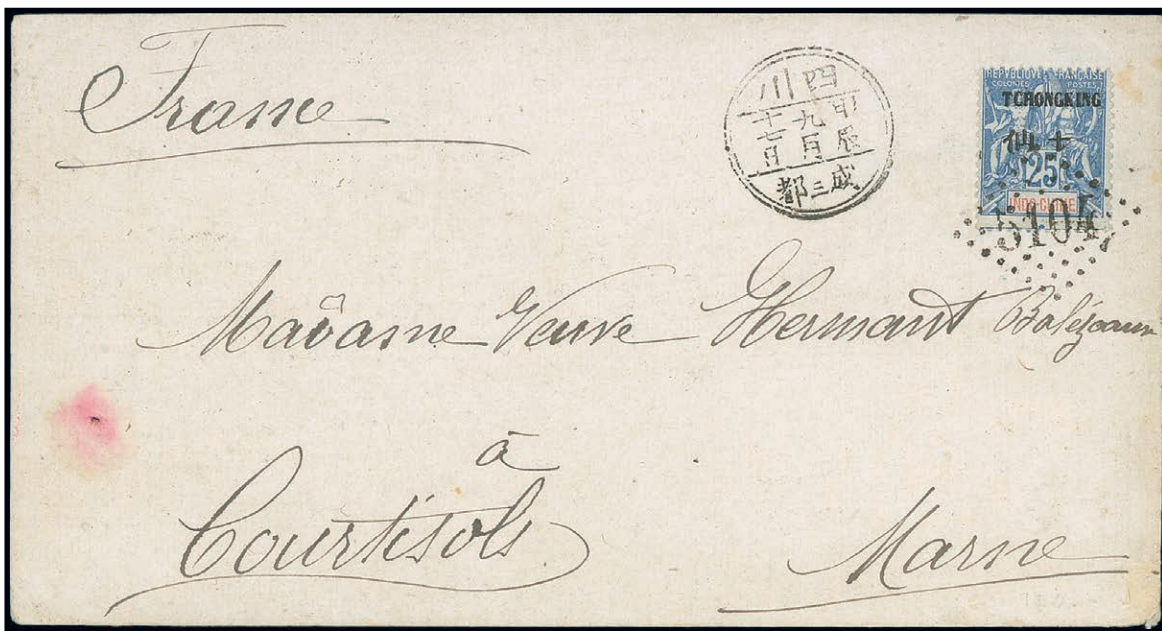 France
四川
甲辰
九月
十七日
成三都
REPVBLIQUE FRANÇAISE
COLONIES POSTES
TCHONGKING
仙
25
INDO-CHINE
5104
Madame Veuve Hermant
à
Courtisols
Marne